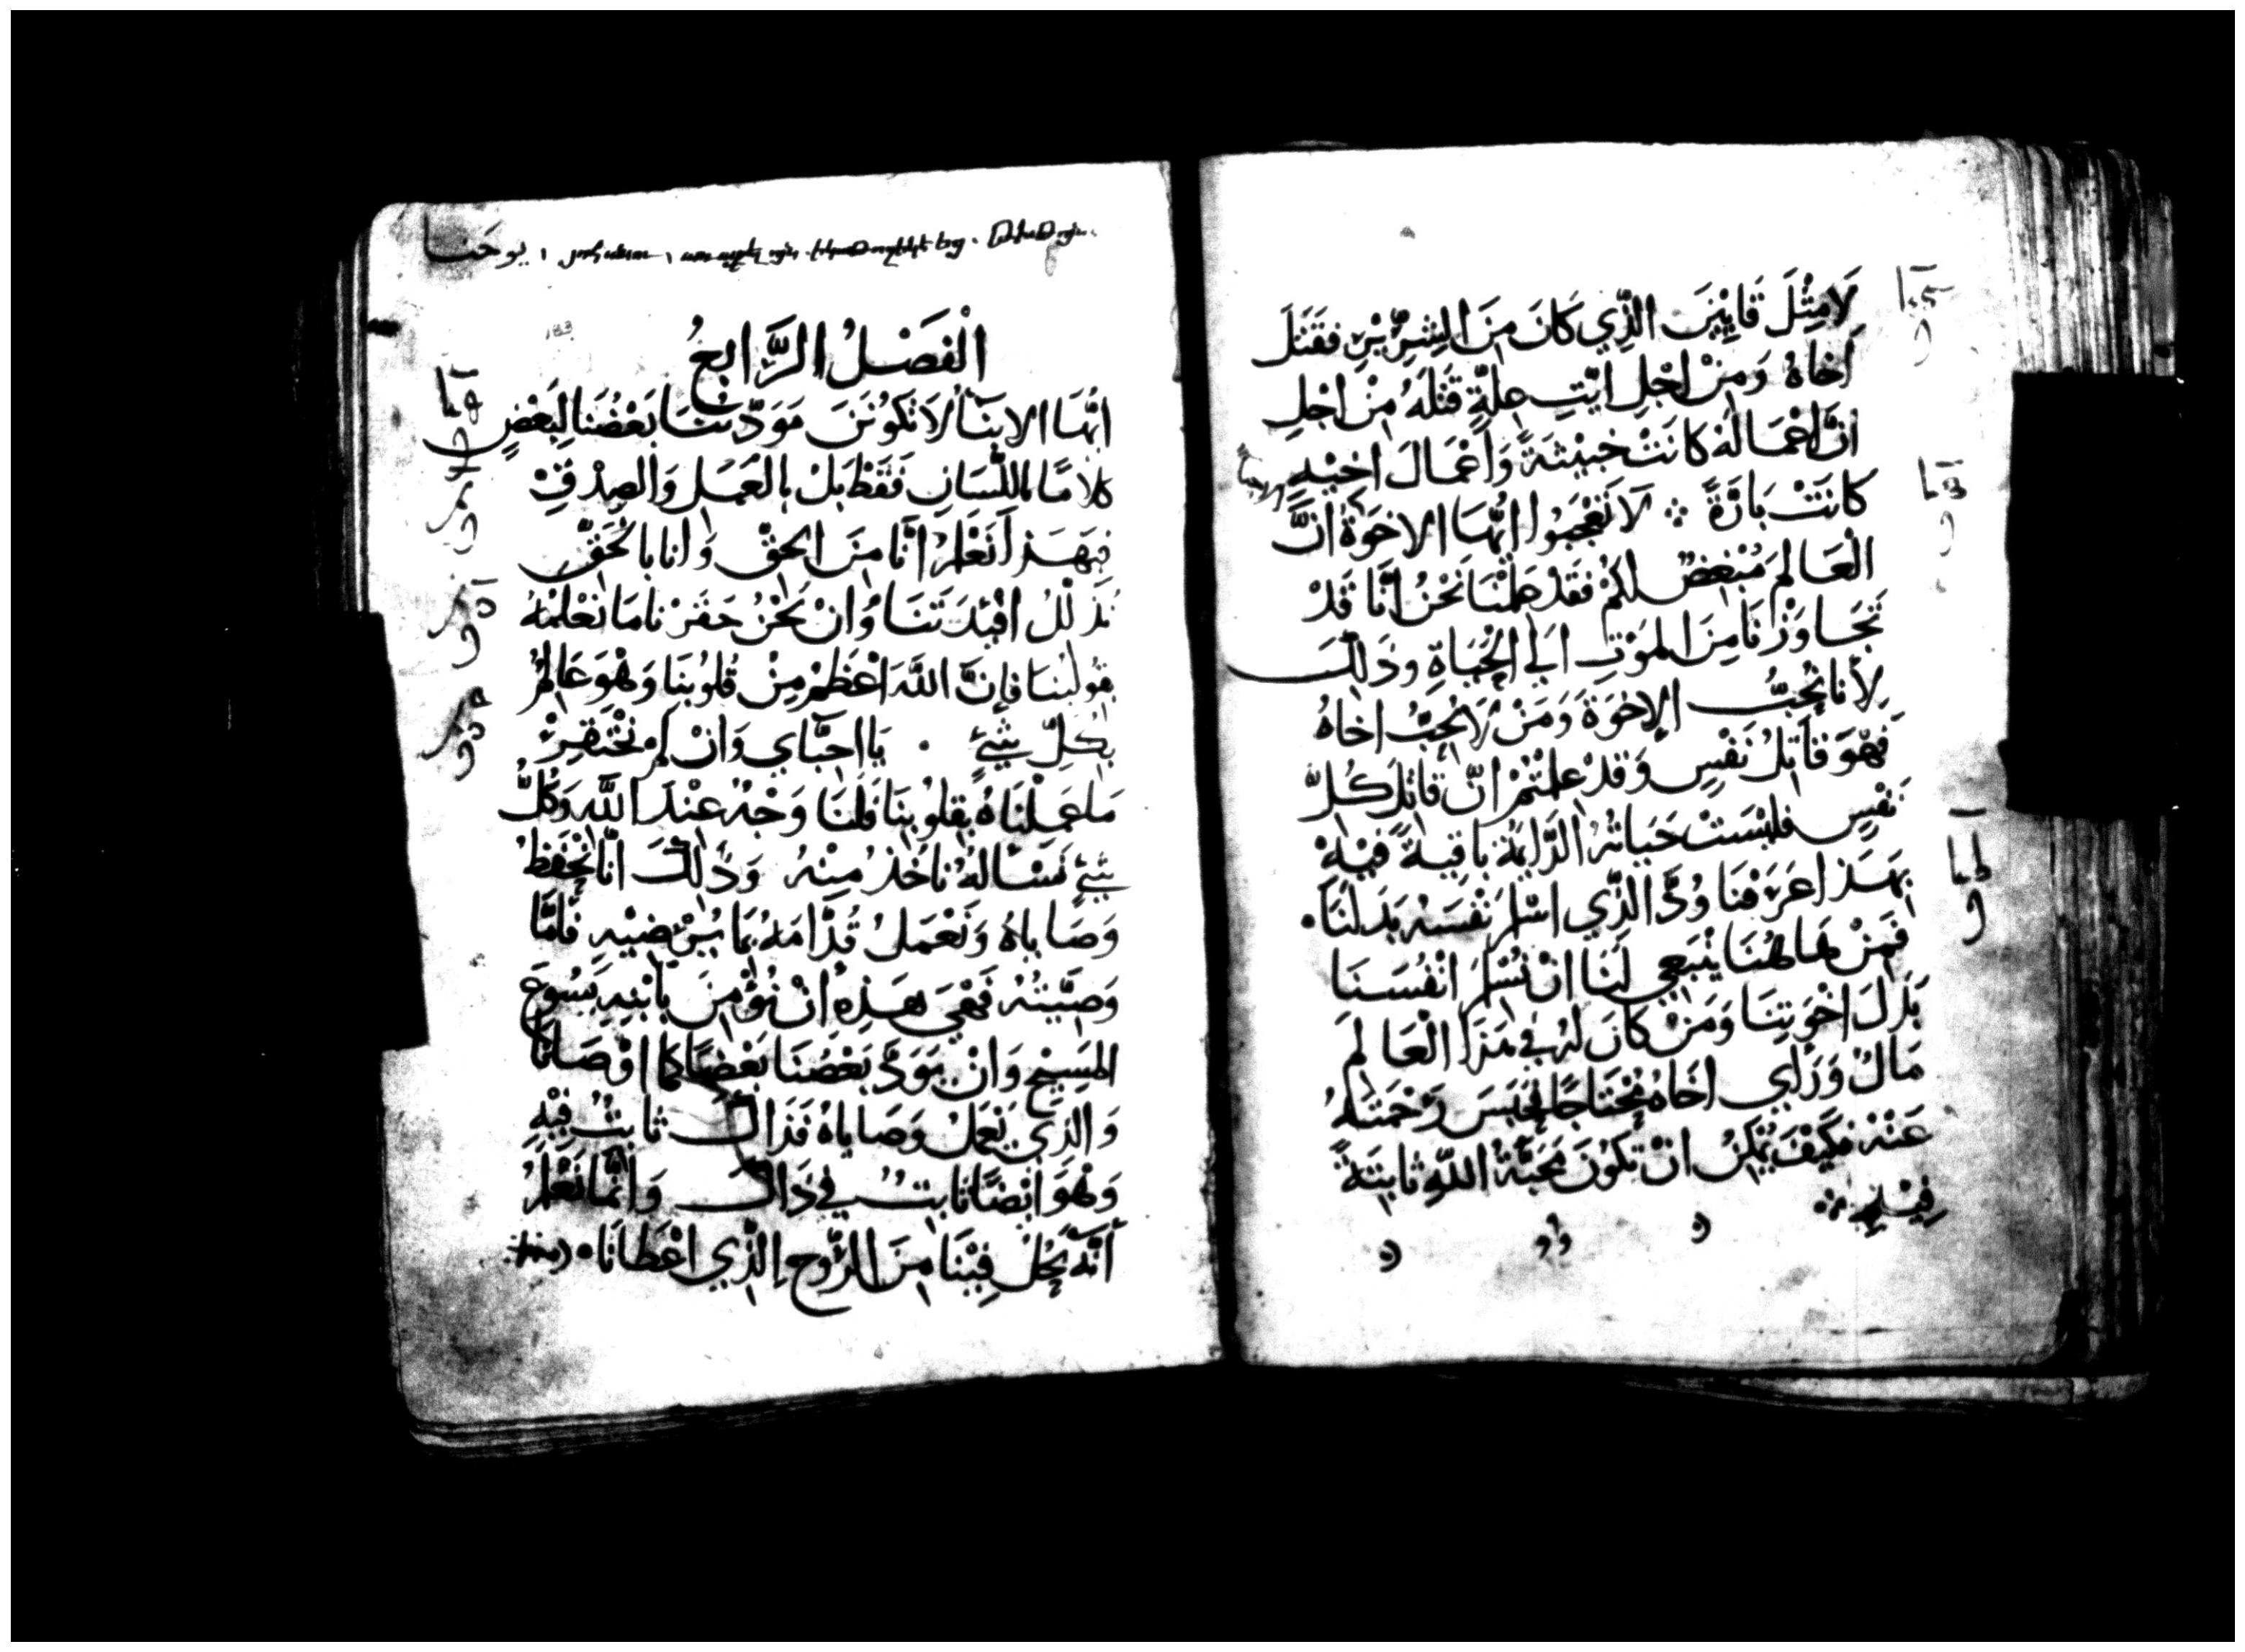 لَا مِثْلَ قَايِيْنَ الَّذِي كَانَ مِنَ الشِّرِّيْرِ فَقَتَلَ
اَخَاهُ وَمِنْ اَجْلِ ايَّتِ عِلَّةٍ قَتَلَهُ مِنْ اَجْلِ
انَّ اعْمَالَهُ كَانَتْ خَبِيْثَةً وَاَعْمَالَ اخِيْهِ
كَانَتْ بَارَّةً ܀ لَا تَعْجَبُوا ايُّهَا الاخوَةُ انَّ
الْعَالِمَ مُبْغِضٌ لَكُمْ فَقَدْ عَلِمْنَا نَحْنُ انَّا قَدْ
تَجَاوَزْنَا مِنَ الْمَوْتِ الَي الْحَيَاةِ وذَلِكَ
لِأَنا نُحِبُّ الإخوَةَ وَمَنْ لَا يُحِبُّ اخاهُ
فَهْوَ قَاتِلُ نَفْسٍ وَقَدْ عَلِمْتُمْ انَّ قَاتِلَ كُلِّ
نَفْسٍ فَلَيْسَتْ حَيَاتُهُ الدَّايِمَةُ بَاقِيةً فِيْهِ
بِهَذا عَرَفْنَا وُدَّ الَّذِي اسْلَمَ نَفْسَهُ بَدَلَنَا .
فَمِنْ هَاهُنَا يَنْبَغِي لَنَا انْ نُسْلِمَ انْفُسَنَا
بَدَلَ اخْوَتِنَا وَمَنْ كَانَ لَهُ فِي هَذَا الْعَالَمِ
مَالٌ وَرَاي اخَاهُ مُحْتَاجًا فَحَبَسَ رَحْمَتَهُ
عَنْهُ فَكَيْفَ يُمْكِنُ انْ تَكُوْنَ مَحَبَّةُ اللّهِ ثابِتَةً
فِيْهِ ܀
يوحنا
الْفَصْلُ الرَّابِعُ
ايُّهَا الابنَآ لَا تَكُوْنَنَّ مَوَدّتُنَا بَعْضُنَا لِبَعْضٍ
كلامًا باللّسَانِ فَقَطْ بَلْ بِالْعَمَلِ وَالْصِدْقِ
فبِهَذَا نَعْلَمُ انَّا مِنَ الحَقِّ وَانا بالحَقِّ
نُذَلّلُ افْئِدَتَنَا وَانْ نَحْنُ حَقَّرْنَا مَا نَعْلَمْهُ
بِقُوْلِنَا فَإِنَّ اللَّهَ اعْظَمُ مِنْ قُلُوْبِنَا وَهُوَ عَالِمٌ
بكلِّ شَيْءٍ . يَا احبَّاي وَانْ لَمْ نَحْتَقِرْ
مَا عَمِلْنَاهُ بِقلُوْبِنَا فَلَنَا وَجْهٌ عِنْدَ اللّهِ وَكُلُّ
شَيْءٍ نَسْالهُ نَاخُذُ مِنْهُ وَذَلِكَ انَّا نَحْفَظُ
وَصَايَاهُ وَنَعْمَلُ قُدَّامَهُ بِمَا يُرْضِيْهِ فَأَمَّا
وَصِيَّتُهُ فَهْيَ هَذِهِ أَنْ نُؤْمِنَ بِابْنِهِ يَسُوْعَ
المَسِيْحِ وَانْ يَوَدَّ بَعْضُنَا بَعْضًا كمَا اوْصَانَا
وَالَّذِي يَعْمَلُ وَصَايَاهُ فَذَاكَ ثَابِتٌ فِيْهِ
وَهْوَ ايْضًا ثَابِتٌ فِي ذَاكَ وَانَّمَا نَعْلَمُ
أَنَّهُ يَحُلُّ فِيْنَا مِنَ الرُّوحِ الَّذِي اعْطَانَا .